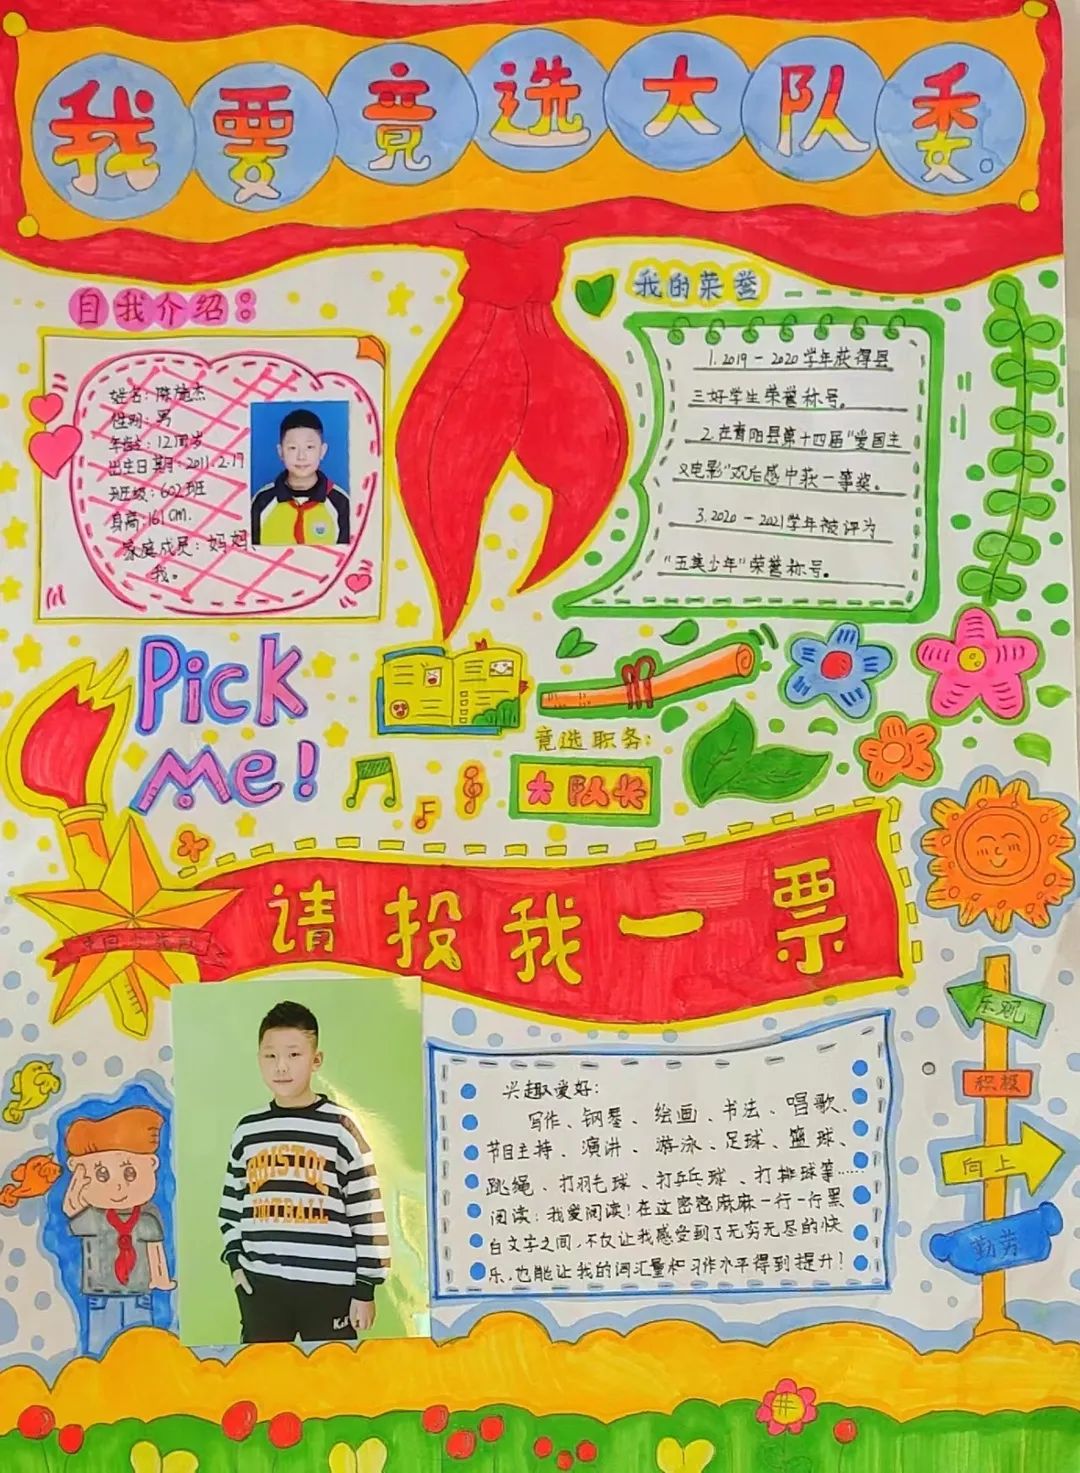 我要竟选大队委。
自我介绍：
姓名：陈施杰
性别：男
年龄：12周岁
出生日期：2011-2-19
班级：602班
身高：161cm.
家庭成员：妈妈、
我。
我的荣誉
1.2019-2020学年获得县
三好学生荣誉称号。
2.在青阳县第十四届“爱国主
义电影”观后感中获一等奖。
3.2020-2021学年被评为
“五美少年”荣誉称号。
Pick
Me!
竟选职务：
大队长
请投我一票
兴趣爱好：
写作、钢琴、绘画、书法、唱歌、
节目主持、演讲、游泳、足球、篮球、
跳绳、打羽毛球、打乒乓球、打排球等……
阅读：我爱阅读！在这密密麻麻一行一行黑
白文字之间，不仅让我感受到了无穷无尽的快
乐，也能让我的词汇量和习作水平得到提升！
乐观
积极
向上
勤劳
BRISTOL
FOOTBALL